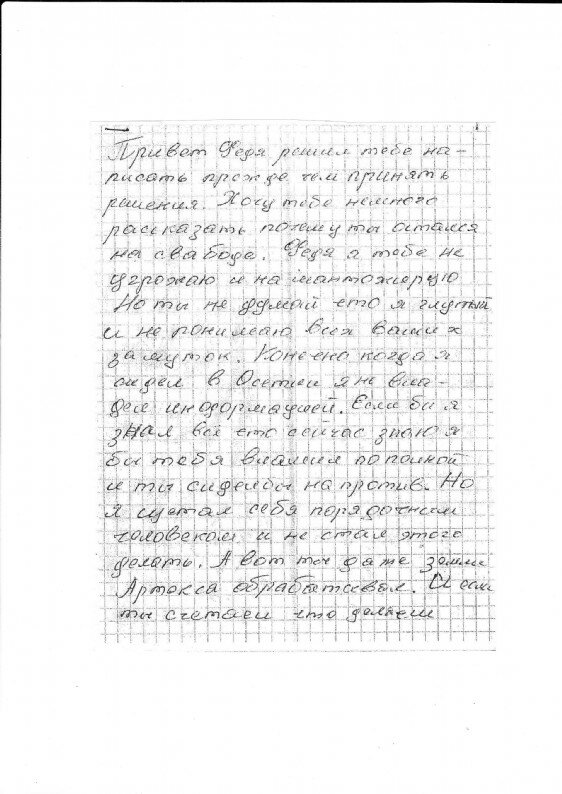 Привет Федя решил тебе на-
писать прежде чем принять
решения. Хочу тебе немного
рассказать почему ты остался
на свабоде. Федя я тебе не
угрожаю и на шантожирую
Но ты не думай что я глупый
и не понимаю всех ваших
замуток. Конечно когда я
сидел в Осетии я не вла-
дел информацией. Если бы я
знал всё что сейчас знаю я
бы тебя вламил по полной
и ты сидел бы на против. Но
я щетал себя порядочным
человеком и не стал этого
делать. А вот ты даже земли
Артокса обрабатывал. И если
ты счетаеш что делаеш